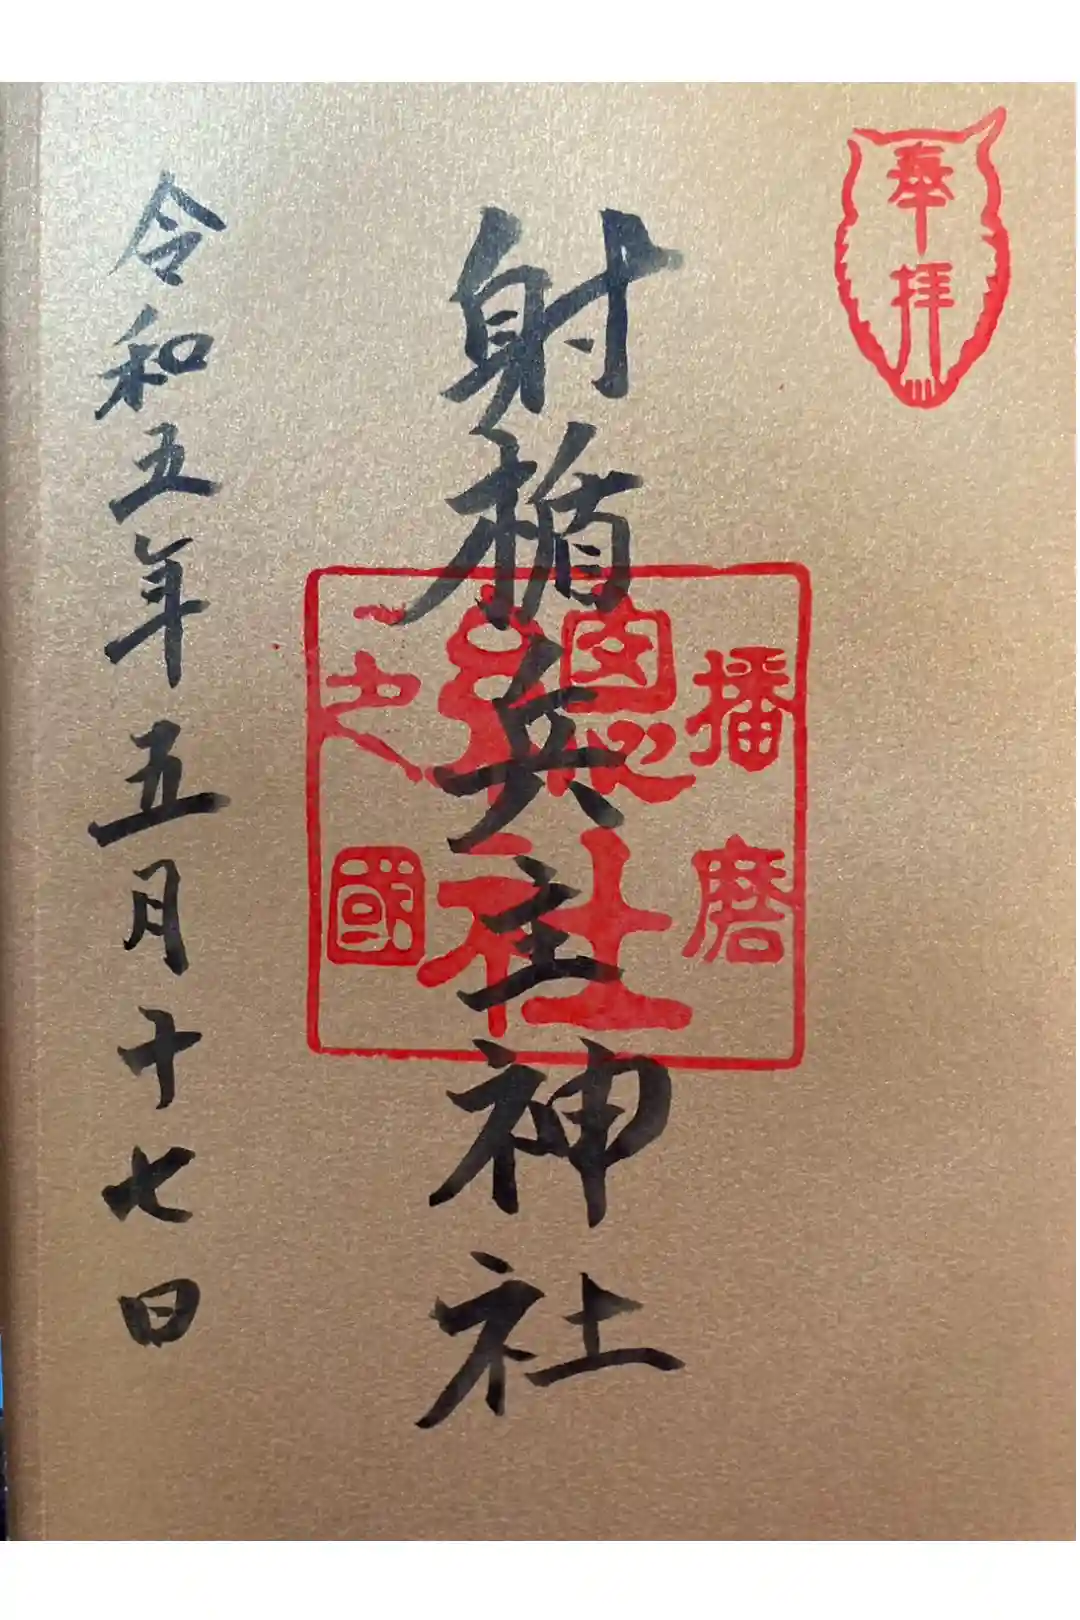 奉拝
射楯兵主神社
播磨
總社
之國
一
令和五年五月十七日